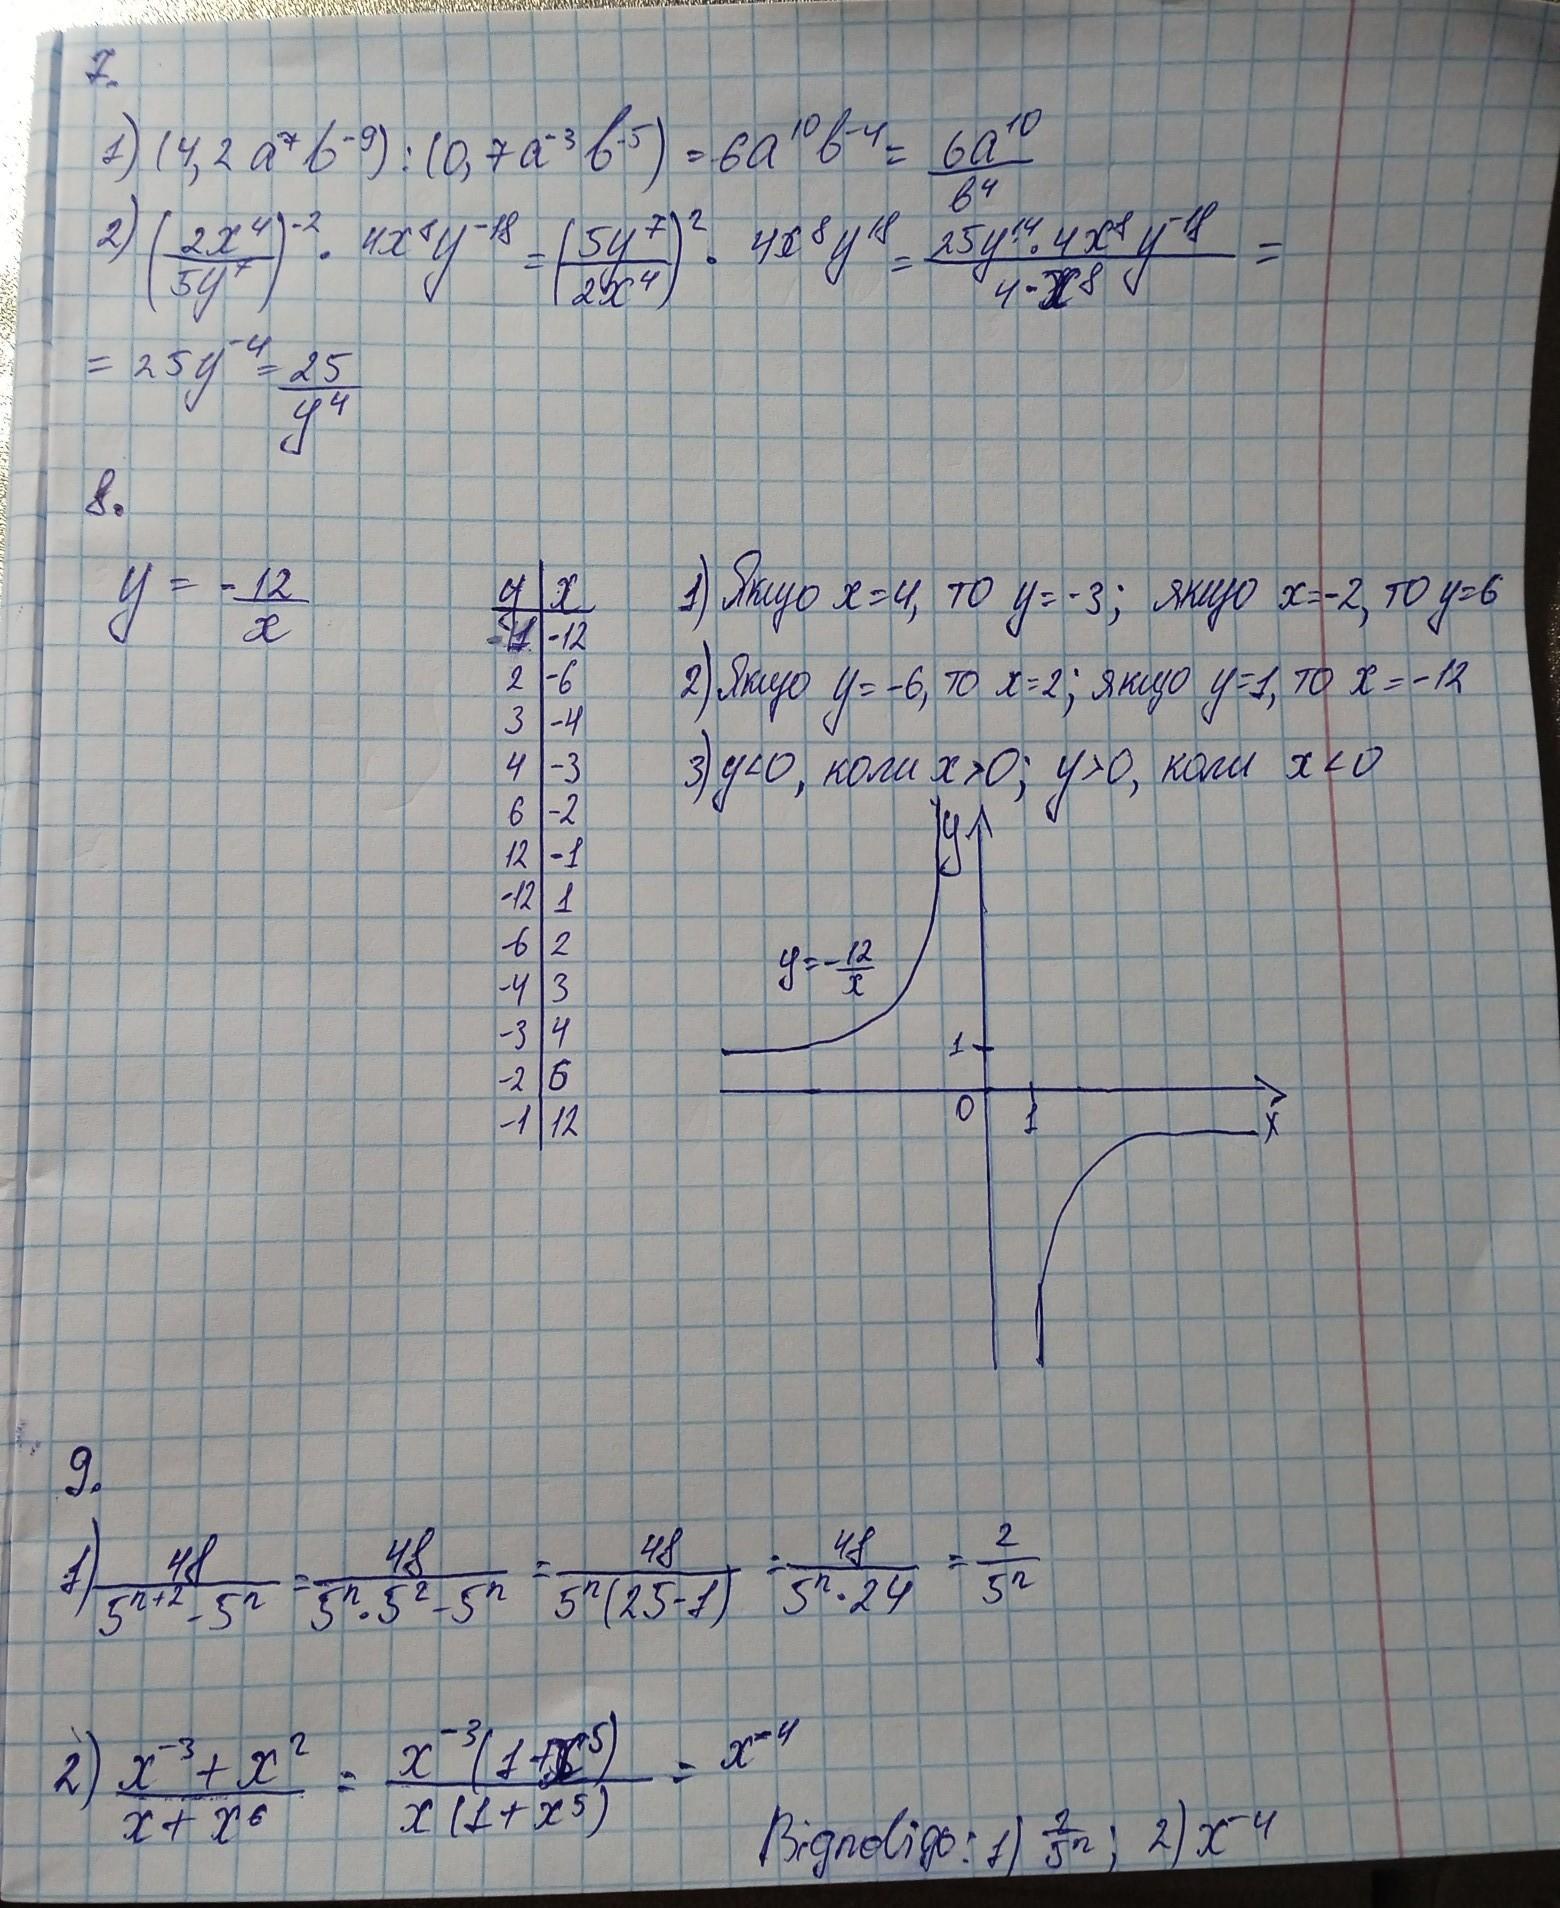 7.
1) (4,2 a⁷ b⁻⁹) : (0,7a⁻³ b⁻⁵) = 6a¹⁰b⁻⁴ = 6a¹⁰/b⁴
2) (2x⁴/5y⁷)⁻² · 4x⁸y⁻¹⁸ = (5y⁷/2x⁴)² · 4x⁸y¹⁸ = 25y¹⁴·4x⁸y⁻¹⁸/4·x⁸ =
= 25y⁻⁴ = 25/y⁴
8.
y = -12/x
y | x
| -12
2 | -6
3 | -4
4 | -3
6 | -2
12 | -1
-12 | 1
-6 | 2
-4 | 3
-3 | 4
-2 | 6
-1 | 12
1) Якщо x=4, то y=-3; якщо x=-2, то y=6
2) Якщо y=-6, то x=2; якщо y=1, то x=-12
3) y<0, коли x>0; y>0, коли x<0
y
y=-12/x
1
0
1
x
9.
1) 48/5ⁿ⁺²-5ⁿ = 48/5ⁿ·5²-5ⁿ = 48/5ⁿ(25-1) = 48/5ⁿ·24 = 2/5ⁿ
2) x⁻³+x²/x+x⁶ = x⁻³(1+x⁵)/x(1+x⁵) = x⁻⁴
Відповідь: 1) 2/5ⁿ; 2) x⁻⁴